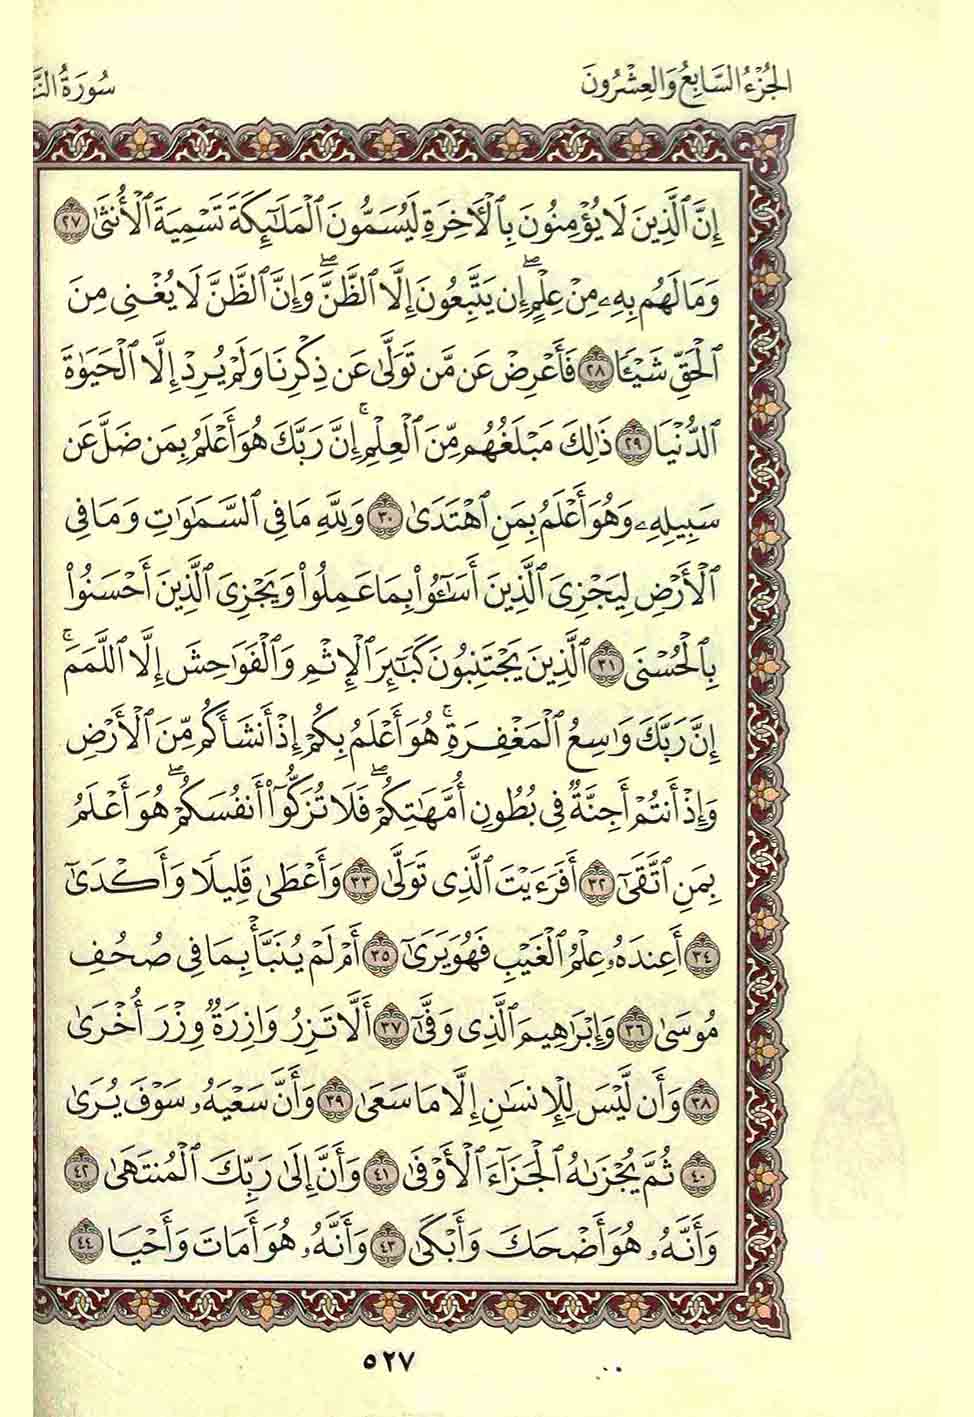 الجُزْءُ السَّابِعُ وَالعِشْرُونَ
سُورَةُ النَّ
إِنَّ ٱلَّذِينَ لَا يُؤْمِنُونَ بِٱلْـَٔاخِرَةِ لَيُسَمُّونَ ٱلْمَلَـٰٓئِكَةَ تَسْمِيَةَ ٱلْأُنثَىٰ ٢٧
وَمَا لَهُم بِهِۦ مِنْ عِلْمٍ ۖ إِن يَتَّبِعُونَ إِلَّا ٱلظَّنَّ ۖ وَإِنَّ ٱلظَّنَّ لَا يُغْنِى مِنَ
ٱلْحَقِّ شَيْـًٔا ٢٨ فَأَعْرِضْ عَن مَّن تَوَلَّىٰ عَن ذِكْرِنَا وَلَمْ يُرِدْ إِلَّا ٱلْحَيَوٰةَ
ٱلدُّنْيَا ٢٩ ذَٰلِكَ مَبْلَغُهُم مِّنَ ٱلْعِلْمِ ۚ إِنَّ رَبَّكَ هُوَ أَعْلَمُ بِمَن ضَلَّ عَن
سَبِيلِهِۦ وَهُوَ أَعْلَمُ بِمَنِ ٱهْتَدَىٰ ٣٠ وَلِلَّهِ مَا فِى ٱلسَّمَـٰوَٰتِ وَمَا فِى
ٱلْأَرْضِ لِيَجْزِىَ ٱلَّذِينَ أَسَـٰٓـُٔوا۟ بِمَا عَمِلُوا۟ وَيَجْزِىَ ٱلَّذِينَ أَحْسَنُوا۟
بِٱلْحُسْنَى ٣١ ٱلَّذِينَ يَجْتَنِبُونَ كَبَـٰٓئِرَ ٱلْإِثْمِ وَٱلْفَوَٰحِشَ إِلَّا ٱللَّمَمَ ۚ
إِنَّ رَبَّكَ وَٰسِعُ ٱلْمَغْفِرَةِ ۚ هُوَ أَعْلَمُ بِكُمْ إِذْ أَنشَأَكُم مِّنَ ٱلْأَرْضِ
وَإِذْ أَنتُمْ أَجِنَّةٌ فِى بُطُونِ أُمَّهَـٰتِكُمْ ۖ فَلَا تُزَكُّوٓا۟ أَنفُسَكُمْ ۖ هُوَ أَعْلَمُ
بِمَنِ ٱتَّقَىٰٓ ٣٢ أَفَرَءَيْتَ ٱلَّذِى تَوَلَّىٰ ٣٣ وَأَعْطَىٰ قَلِيلًا وَأَكْدَىٰٓ
٣٤ أَعِندَهُۥ عِلْمُ ٱلْغَيْبِ فَهُوَ يَرَىٰٓ ٣٥ أَمْ لَمْ يُنَبَّأْ بِمَا فِى صُحُفِ
مُوسَىٰ ٣٦ وَإِبْرَٰهِيمَ ٱلَّذِى وَفَّىٰٓ ٣٧ أَلَّا تَزِرُ وَازِرَةٌ وِزْرَ أُخْرَىٰ
٣٨ وَأَن لَّيْسَ لِلْإِنسَـٰنِ إِلَّا مَا سَعَىٰ ٣٩ وَأَنَّ سَعْيَهُۥ سَوْفَ يُرَىٰ
٤٠ ثُمَّ يُجْزَىٰهُ ٱلْجَزَآءَ ٱلْأَوْفَىٰ ٤١ وَأَنَّ إِلَىٰ رَبِّكَ ٱلْمُنتَهَىٰ ٤٢
وَأَنَّهُۥ هُوَ أَضْحَكَ وَأَبْكَىٰ ٤٣ وَأَنَّهُۥ هُوَ أَمَاتَ وَأَحْيَا ٤٤
٥٢٧